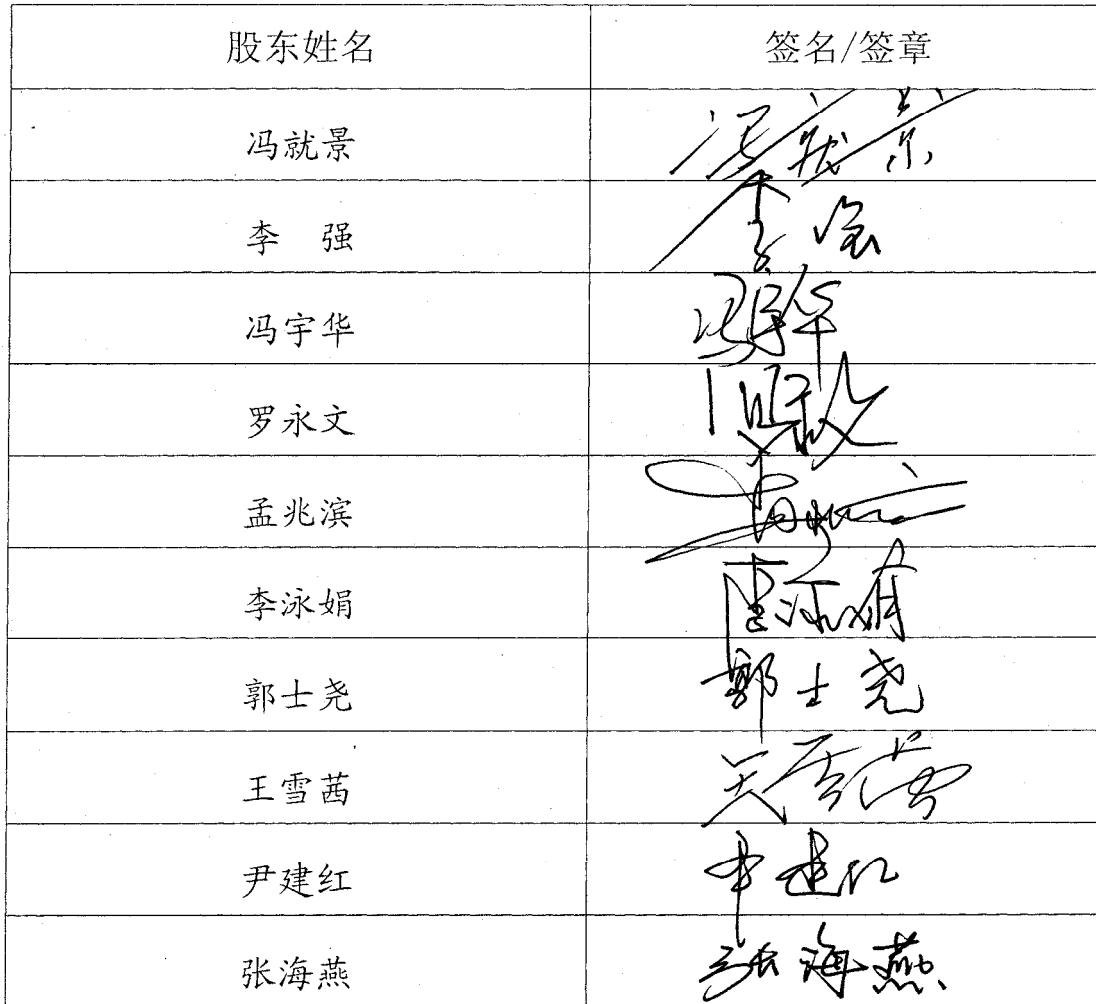 股东姓名 签名/签章
冯就景 冯就景
李 强 李强
冯宇华 冯宇华
罗永文 罗永文
孟兆滨
李泳娟 李泳娟
郭士尧 郭士尧
王雪茜
尹建红 尹建红
张海燕 张海燕